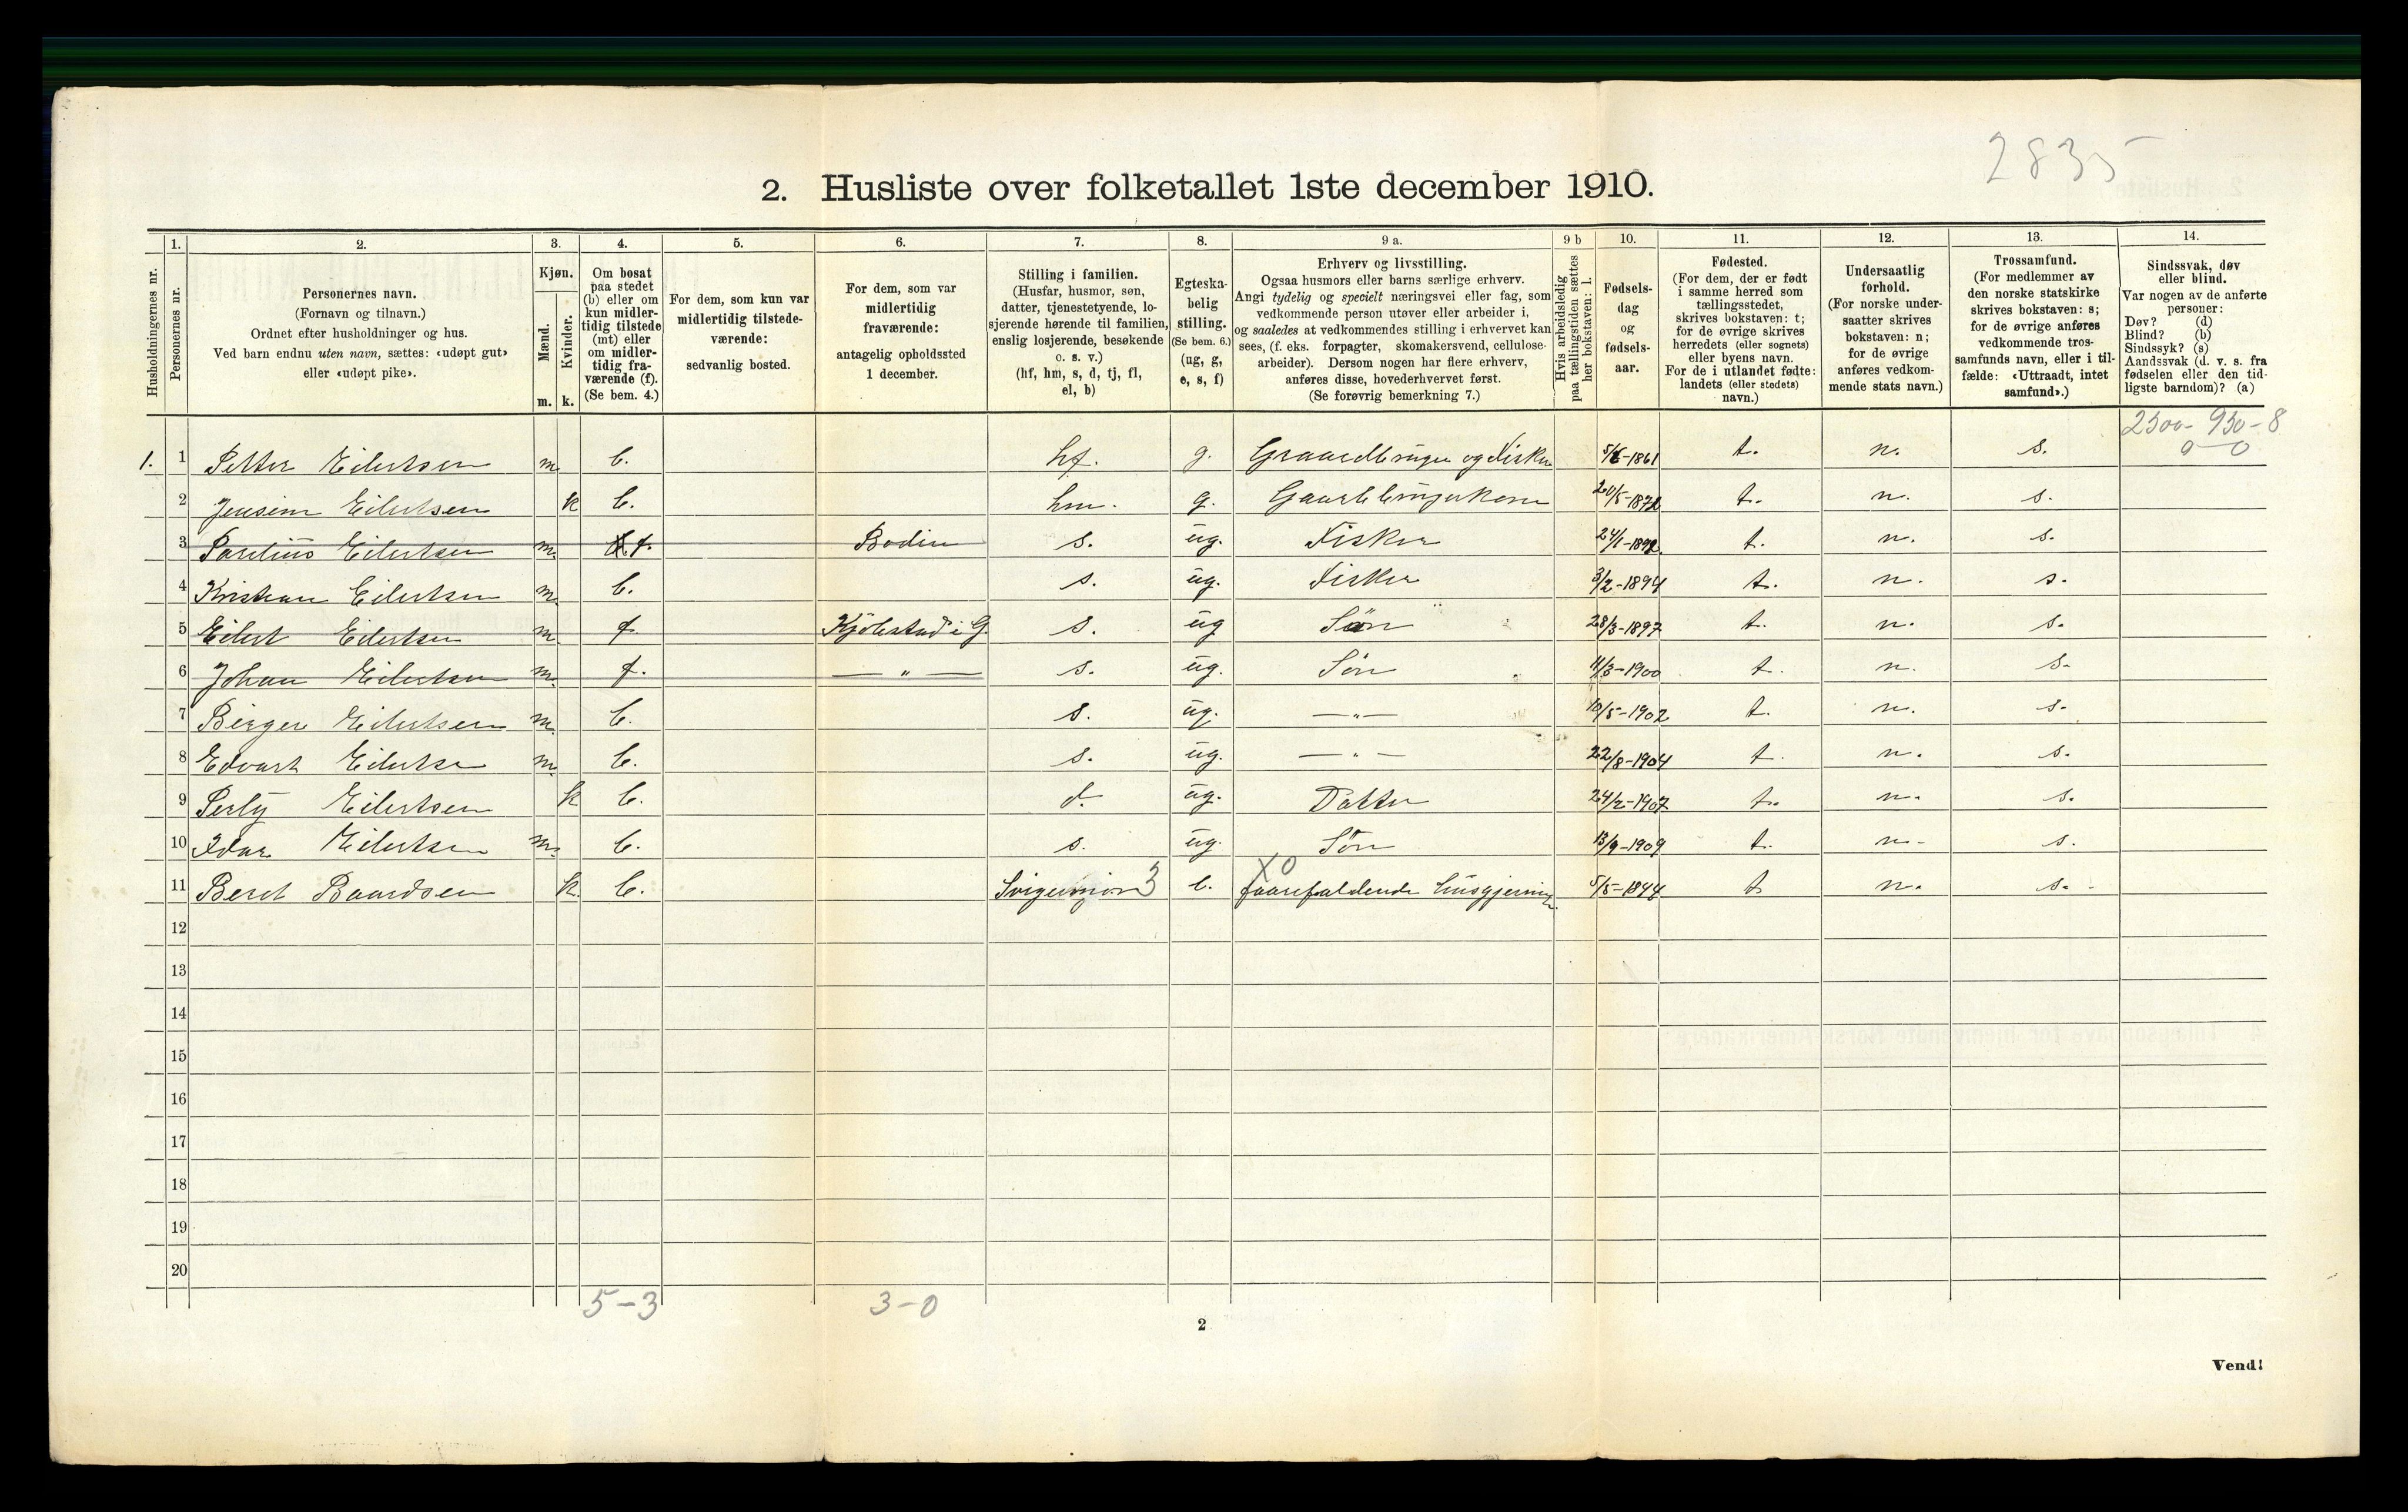 2835
2. Husliste over folketallet 1ste december 1910.
Husholdningernes nr.
1.
Personernes nr.
2.
Personernes navn.
(Fornavn og tilnavn.)
Ordnet efter husholdninger og hus.
Ved barn endnu uten navn, sættes: «udøpt gut»
eller «udøpt pike».
3.
Kjøn.
Mænd.
Kvinder.
m. k.
4.
Om bosat
paa stedet
(b) eller om
kun midler-
tidig tilstede
(mt) eller
om midler-
tidig fra-
værende (f).
(Se bem. 4.)
5.
For dem, som kun var
midlertidig tilstede-
værende:
sedvanlig bosted.
6.
For dem, som var
midlertidig
fraværende:
antagelig opholdssted
1 december.
7.
Stilling i familien.
(Husfar, husmor, søn,
datter, tjenestetyende, lo-
sjerende hørende til familien,
enslig losjerende, besøkende
o. s. v.)
(hf, hm, s, d, tj, fl,
el, b)
8.
Egteska-
belig
stilling.
(Se bem. 6.)
(ug, g,
e, s, f)
9 a.
Erhverv og livsstilling.
Ogsaa husmors eller barns særlige erhverv.
Angi tydelig og specielt næringsvei eller fag, som
vedkommende person utøver eller arbeider i,
og saaledes at vedkommendes stilling i erhvervet kan
sees, (f. eks. forpagter, skomakersvend, cellulose-
arbeider). Dersom nogen har flere erhverv,
anføres disse, hovederhvervet først.
(Se forøvrig bemerkning 7.)
9 b
Hvis arbeidsledig
paa tællingstiden sættes
her bokstaven: l.
10.
Fødsels-
dag
og
fødsels-
aar.
11.
Fødested.
(For dem, der er født
i samme herred som
tællingsstedet,
skrives bokstaven: t;
for de øvrige skrives
herredets (eller sognets)
eller byens navn.
For de i utlandet fødte:
landets (eller stedets)
navn.)
12.
Undersaatlig
forhold.
(For norske under-
saatter skrives
bokstaven: n;
for de øvrige
anføres vedkom-
mende stats navn.)
13.
Trossamfund.
(For medlemmer av
den norske statskirke
skrives bokstaven: s;
for de øvrige anføres
vedkommende tros-
samfunds navn, eller i til-
fælde: «Uttraadt, intet
samfund».)
14.
Sindssvak, døv
eller blind.
Var nogen av de anførte
personer:
Døv? (d)
Blind? (b)
Sindssyk? (s)
Aandssvak (d. v. s. fra
fødselen eller den tid-
ligste barndom)? (a)
2300- 930-8
0-0
1. 1 Petter Eilertsen m. b. hf. g. Graardbruger og Fisker 1861 t. n. s.
2 Eilertsen k b. hm. g. 20/5-1872 t. n. s.
3 Eilertsen m. f. Bodin s. ug. Fisker 24/1-1892 t. n. s.
4 Kristian Eilertsen m. b. s. ug. Fisker 3/2-1894 t. n. s.
5 Eilert Eilertsen m. f Kjölestad i G. s. ug Sön 28/3-1897 t. n. s.
6 Johan Eilertsen m. f. — " — s. ug. Sön 11/3-1900 t. n. s.
7 Birger Eilertsen m. b. s. ug. —"— 10/5-1902 t. n. s.
8 Edvart Eilertsen m. b. s. ug. —"— 22/8-1904 t. n. s.
9 Perly Eilertsen k b. d. ug. Datter 24/2-1907 t. n. s.
10 Idar Eilertsen m. b. s. ug. Sön 13/9-1909 t. n. s.
11 Beret Baardsen k. b. Svigermor 3 e. X0 faarefaldende husgjerning 5/5-1844 t n. s.
12
13
14
15
16
17
18
19
20
5-3 3-0
2
Vend!